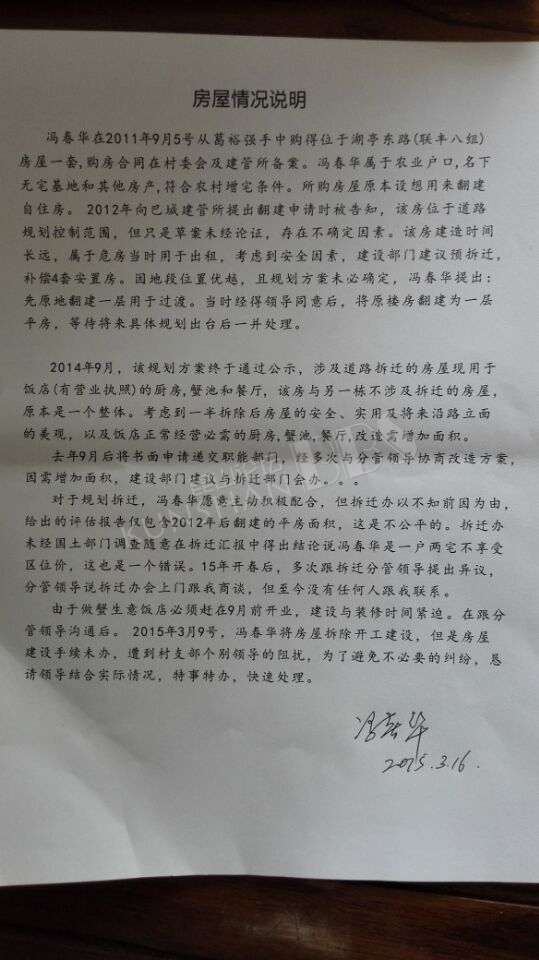 房屋情况说明
冯春华在2011年9月5号从葛裕强手中购得位于湖亭东路(联丰八组)
房屋一套,购房合同在村委会及建管所备案。冯春华属于农业户口,名下
无宅基地和其他房产,符合农村增宅条件。所购房屋原本设想用来翻建
自住房。 2012年向巴城建管所提出翻建申请时被告知, 该房位于道路
规划控制范围, 但只是草案未经论证, 存在不确定因素。该房建造时间
长远, 属于危房当时用于出租, 考虑到安全因素, 建设部门建议预拆迁,
补偿4套安置房。因地段位置优越, 且规划方案未必确定, 冯春华提出:
先原地翻建一层用于过渡。当时经得领导同意后, 将原楼房翻建为一层
平房, 等待将来具体规划出台后一并处理。
2014年9月, 该规划方案终于通过公示, 涉及道路拆迁的房屋现用于
饭店(有营业执照)的厨房,蟹池和餐厅, 该房与另一栋不涉及拆迁的房屋,
原本是一个整体。考虑到一半拆除后房屋的安全、实用及将来沿路立面
的美观, 以及饭店正常经营必需的厨房,蟹池,餐厅,改造需增加面积。
去年9月后将书面申请递交职能部门, 经多次与分管领导协商改造方案,
因需增加面积, 建设部门建议与拆迁部门会办. . .
对于规划拆迁, 冯春华愿意主动积极配合, 但拆迁办以不知前因为由,
给出的评估报告仅包含2012年后翻建的平房面积, 这是不公平的。拆迁办
未经国土部门调查随意在拆迁汇报中得出结论说冯春华是一户两宅不享受
区位价, 这也是一个错误。15年开春后, 多次跟拆迁分管领导提出异议,
分管领导说拆迁办会上门跟我商谈, 但至今没有任何人跟我联系。
由于做蟹生意饭店必须赶在9月前开业, 建设与装修时间紧迫。在跟分
管领导沟通后。 2015年3月9号, 冯春华将房屋拆除开工建设, 但是房屋
建设手续未办, 遭到村支部个别领导的阻扰, 为了避免不必要的纠纷, 恳
请领导结合实际情况, 特事特办, 快速处理。
冯春华
2015.3.16.